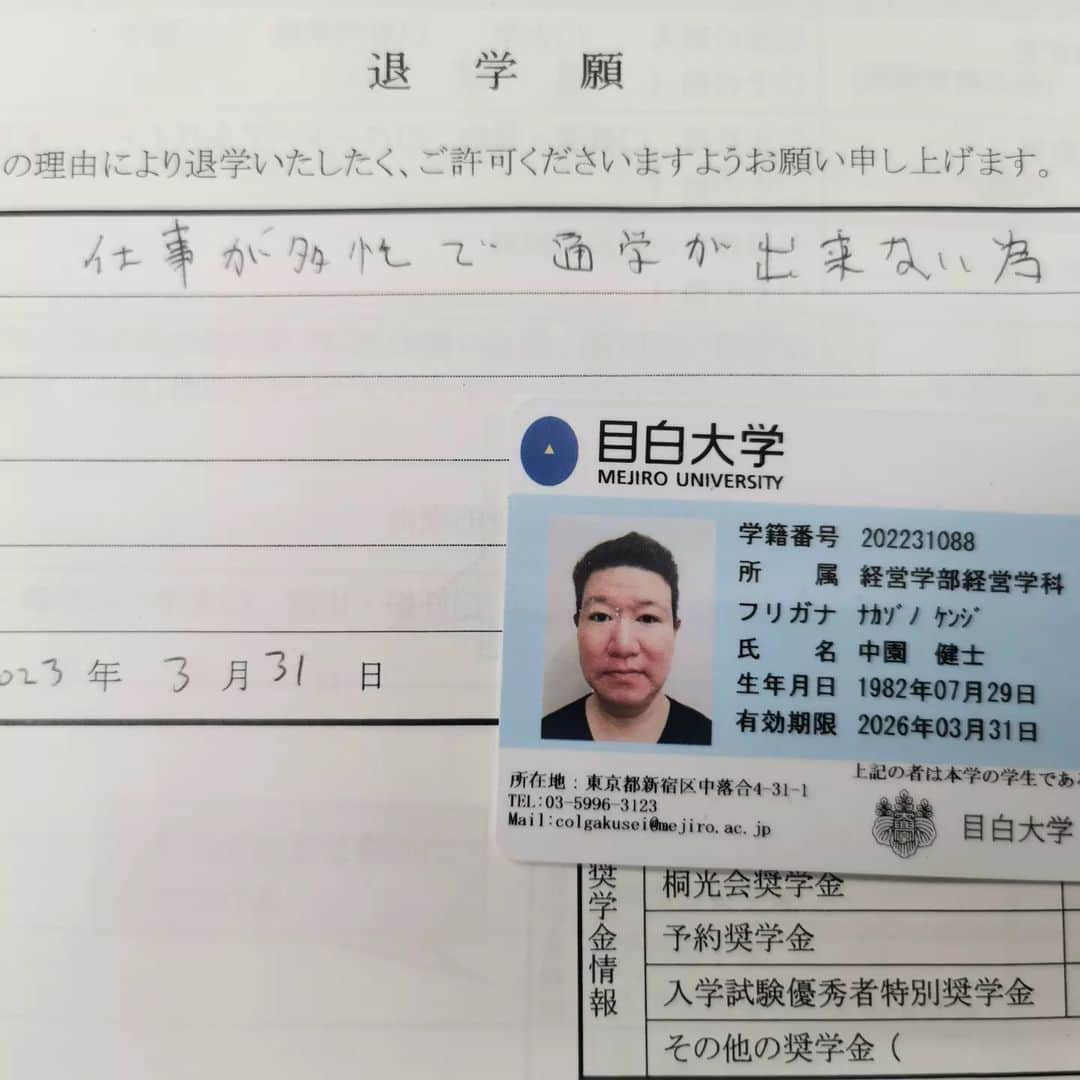 退学願
の理由により退学いたしたく、ご許可くださいますようお願い申し上げます。
仕事が多忙で通学が出来ない為
023年 3月31日
目白大学
MEJIRO UNIVERSITY
学籍番号 202231088
所属 経営学部経営学科
フリガナ ﾅｶｿﾞﾉ ｹﾝｼﾞ
氏名 中園 健士
生年月日 1982年07月29日
有効期限 2026年03月31日
上記の者は本学の学生である
所在地：東京都新宿区中落合4-31-1
TEL:03-5996-3123
Mail:colgakusei@mejiro.ac.jp
目白大学
奨学金情報
桐光会奨学金
予約奨学金
入学試験優秀者特別奨学金
その他の奨学金（